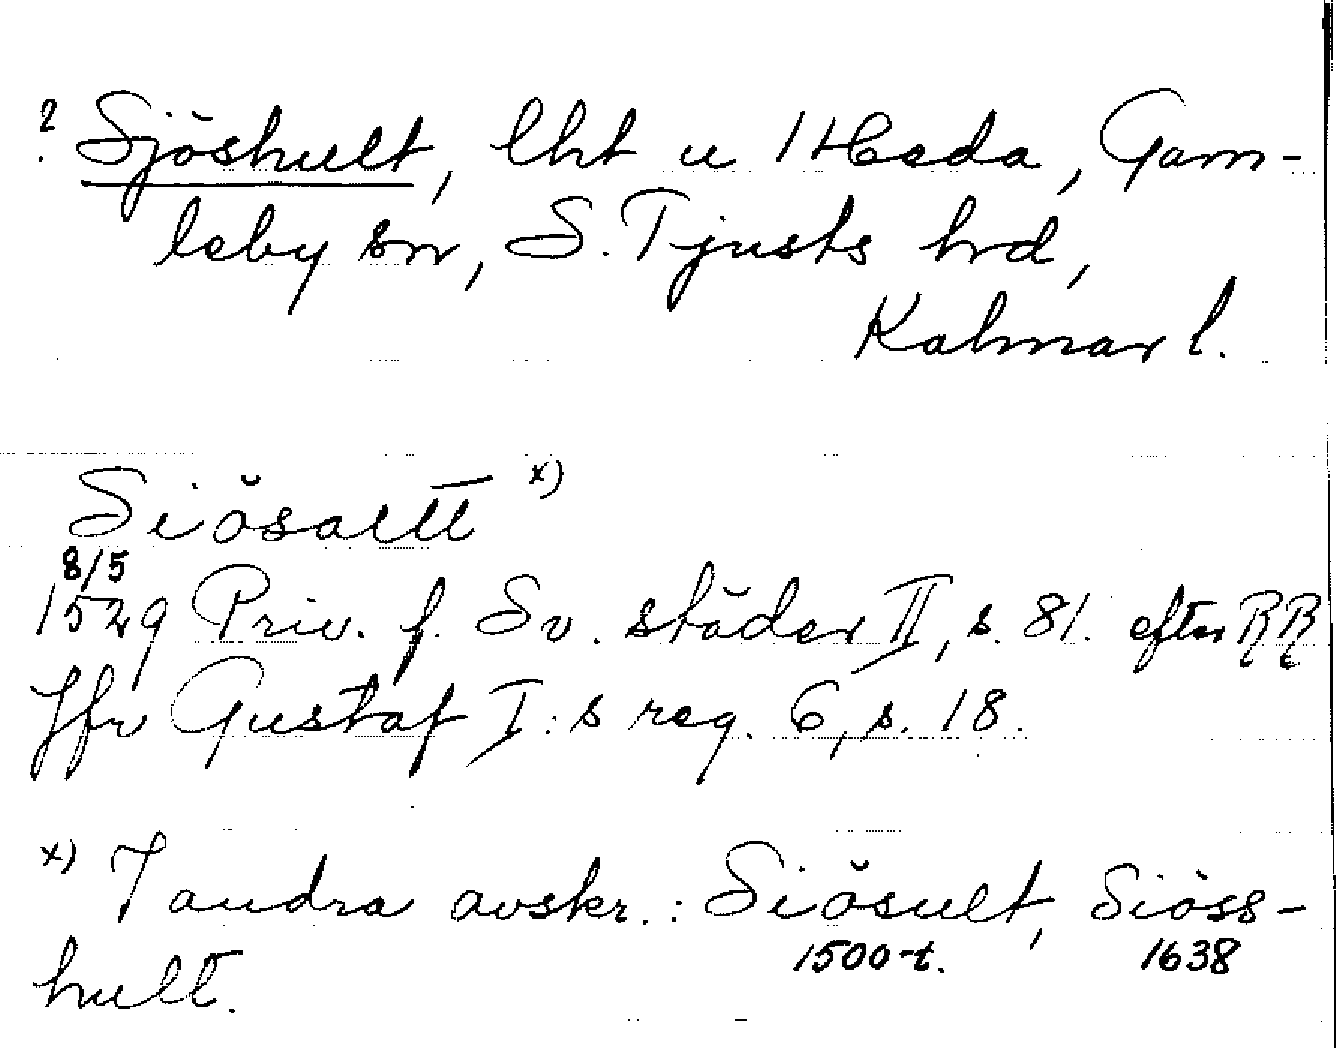 ? Sjöshult, lht u Heda, Gam-
leby sn, S. Tjusts hrd,
Kalmar l.
Siösaltt x)
8/5
1529 Priv. f. Sv. städer II, s. 81. efter RR
Jfr Gustaf I:s reg. 6, s. 18.
x) I andra avskr.: Siösult, Siöss-
1500-t. 1638
hult.